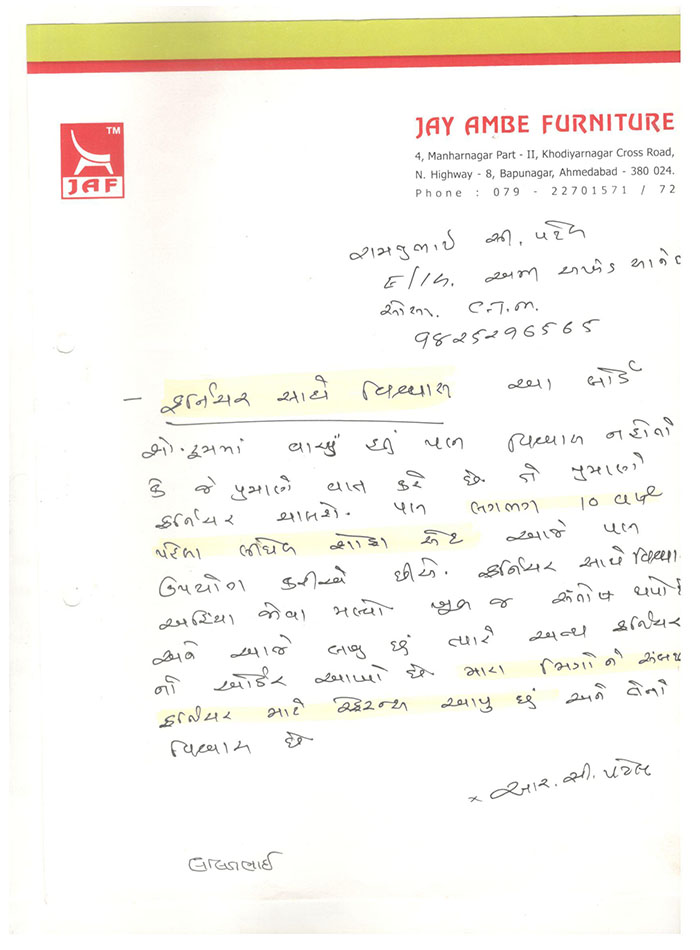 JAY AMBE FURNITURE
TM
JAF
4, Manharnagar Part - II, Khodiyarnagar Cross Road,
N. Highway - 8, Bapunagar, Ahmedabad - 380 024.
Phone : 079 - 22701571 / 72
સી. પટેલ
E/14.
C.T.M.
9825296565
– ફર્નિચર સાથે વિશ્વાસ આ બોર્ડ
શો.રૂમમાં વાચ્યું હતું પણ વિશ્વાસ નહોતો
કે જે પ્રમાણે વાત કરે છે. તે પ્રમાણે
ફર્નિચર ચાલશે. પણ લગભગ 10 વર્ષ
પહેલા લીધેલ સોફા સેટ આજે પણ
ઉપયોગ કરીએ છીએ. ફર્નિચર સાથે વિશ્વાસ
અહિયા જોવા મલ્યો ખુબ જ સંતોષ થયો
અને આજે લખુ છું ત્યારે અન્ય ફર્નિચર
નો ઓર્ડર આપ્યો છે. મારા મિત્રોને
ફર્નિચર માટે આપુ છું અને તેનો
વિશ્વાસ છે
x આર. સી. પટેલ